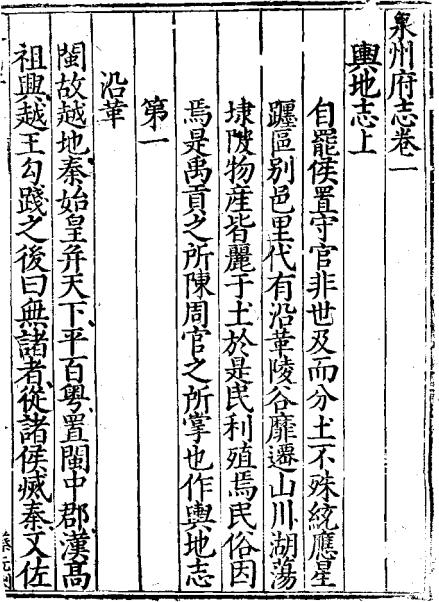 泉州府志卷一
輿地志上
自罷侯置守官非世及而分土不殊統應星
躔區别邑里代有沿革陵谷靡遷山川湖蕩
埭陂物産皆麗于土於是民利殖焉民俗因
焉是禹貢之所陳周官之所掌也作輿地志
第一
沿革
閩故越地秦始皇并天下平百粤置閩中郡漢髙
祖興越王勾踐之後曰無諸者從諸侯烕秦又佐